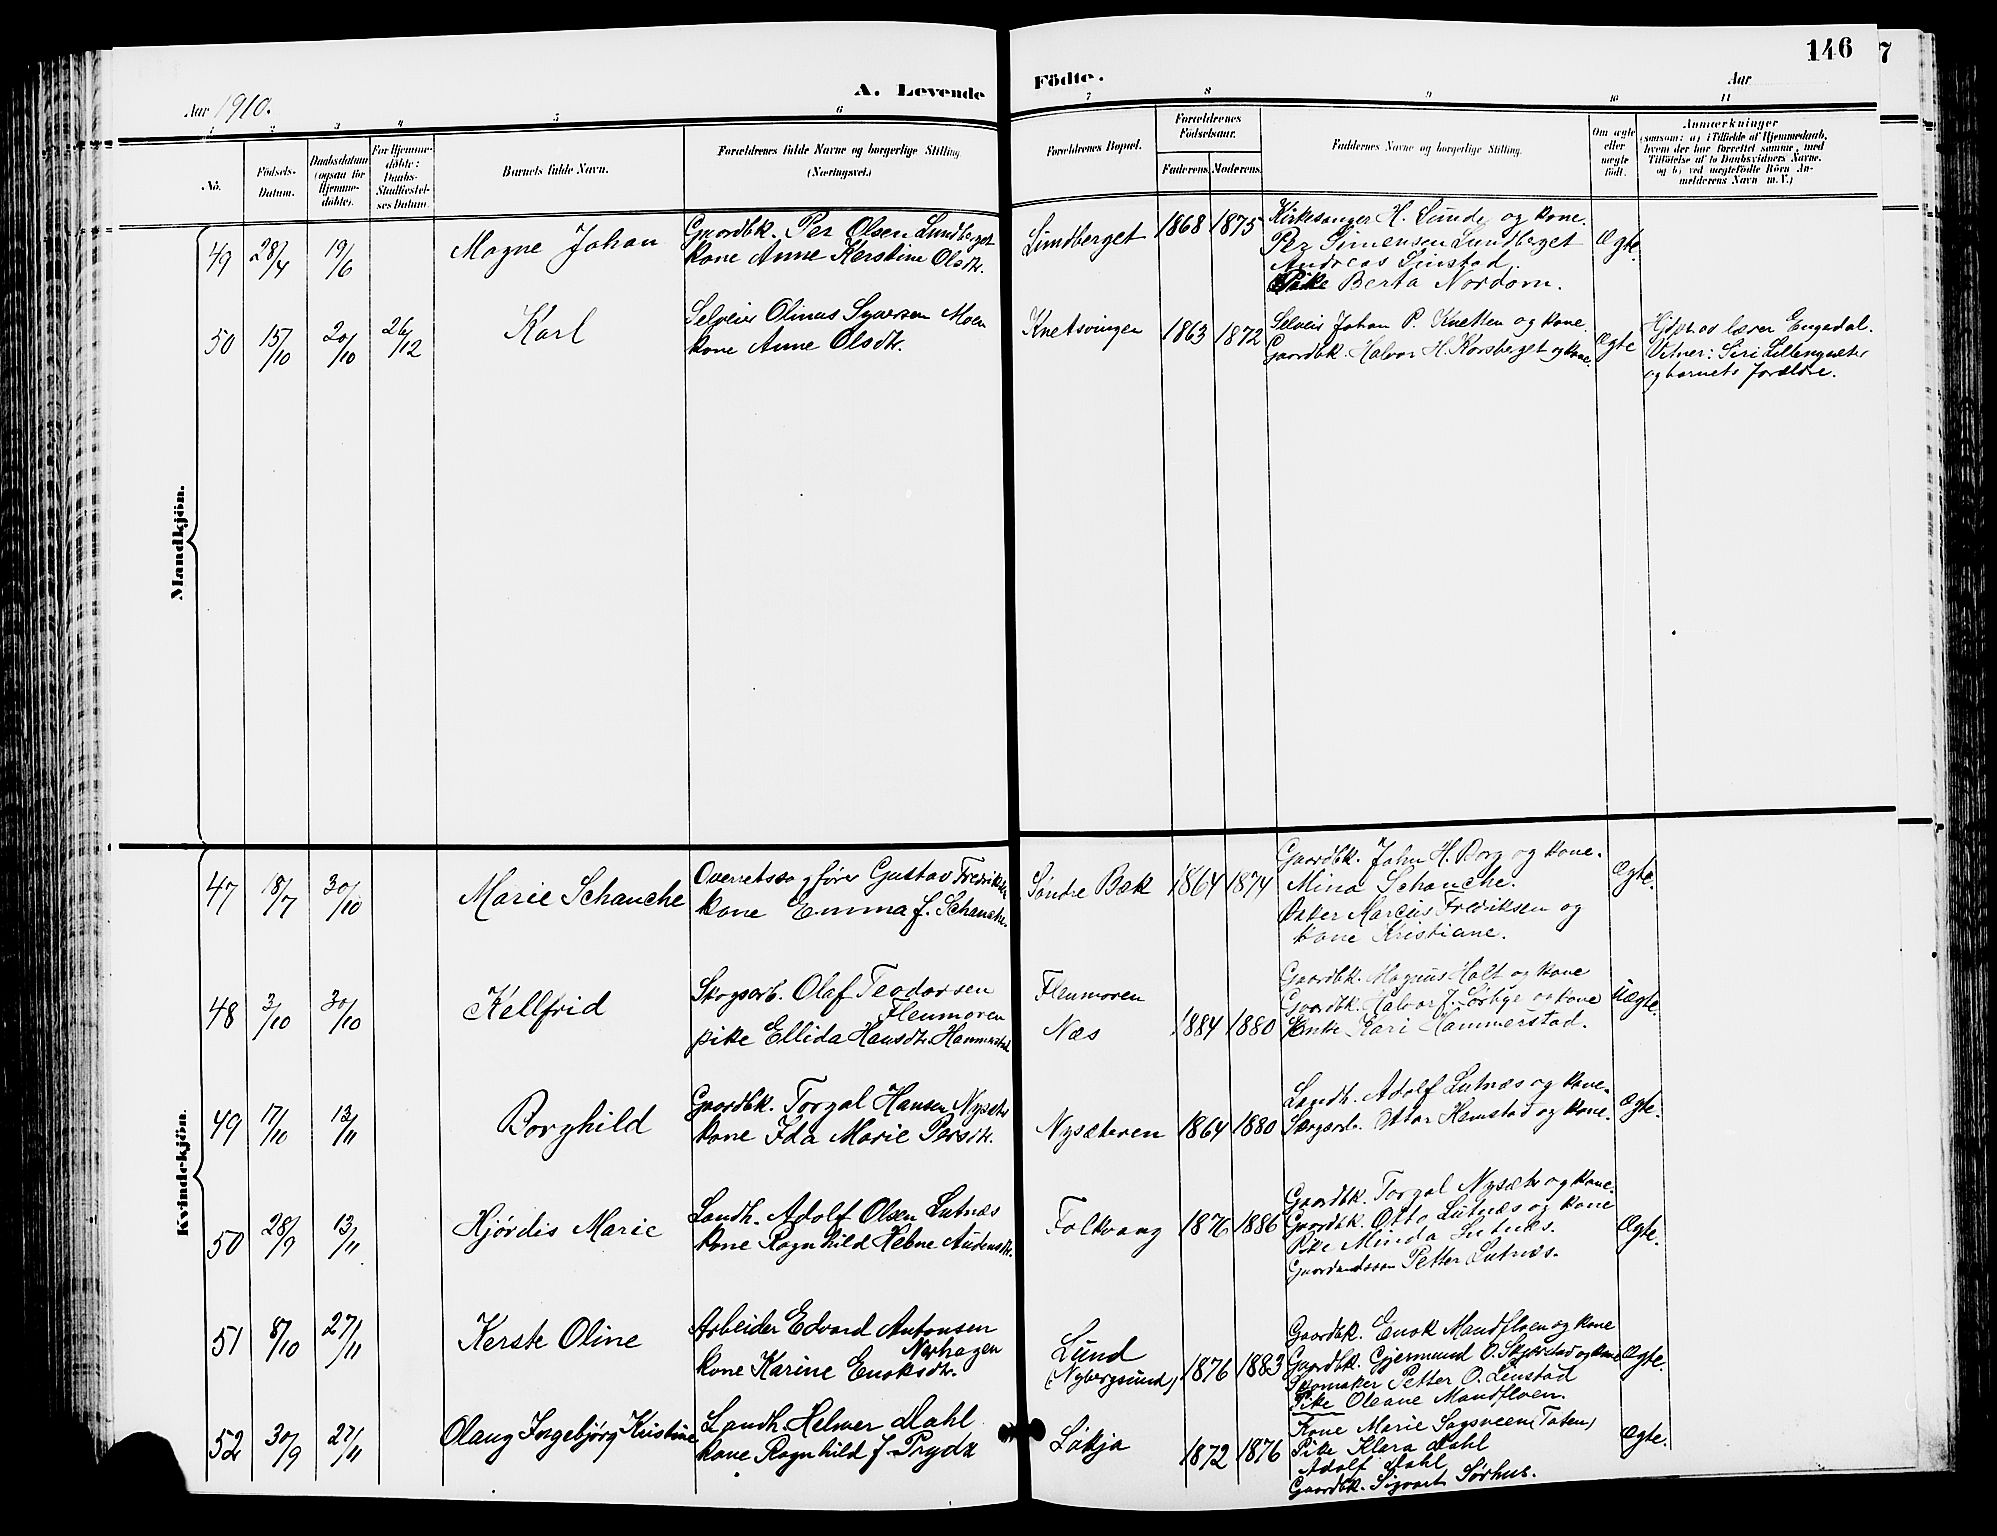 146
7
Aar 1910.
A. Levende
Födte.
Aar
1 2 3 4 5 6 7 8 9 10 11
No.
Födsels-
Datum.
Daabsdatum
(ogsaa for
Hjemme-
döbte).
For Hjemme-
döbte:
Daabs-
Stadfæstel-
ses Datum.
Barnets fulde Navn.
Forældrenes fulde Navne og borgerlige Stilling
(Næringsvei.)
Forældrenes Bopæl.
Forældrenes
Födselsaar.
Faderens. Moderens.
Faddernes Navne og borgerlige Stilling.
Om ægte
eller
uægte
født.
Anmærkninger
(saasom: a) i Tilfælde af Hjemmedaab,
hvem der har forrettet samme, med
Tilföielse af to Daabsvidners Navne.
og b) ved uægtefödte Börn An-
melderens Navn m. V.)
Mandkjön.
49 28/4 19/6 Magne Johan
Gaardbk. Per Olsen Lundberget
kone Anne Kerstine Olsdtr.
Lundberget 1868 1875
Kirkesanger H. Lunde og kone.
Per Simensen Lundberget
Andreas Linstad.
Pike Berta Nordomn.
Ægte.
50 15/10 20/10 26/12 Karl
Selveier Olinus Syversen Moen
kone Anne Olsdtr.
Knetsvingen 1863 1872
Selveir Johan P. Knetten og kone.
Gaardbk. Halvor H. Korsberget og kone.
Ægte
Hjdpt. av lærer Engedal.
Vitner: Siri Lillengsæter
og barnets forældre.
Kvindekjön.
47 18/7 30/10 Marie Schanche
Overretssagfører Gustav Fredriksen
kone Emma J. Schanche.
Søndre Bæk 1864 1874
Gaardbk. John H. Borg og kone.
Mina Schanche.
Baker Marcus Fredriksen og
kone Kristiane.
Ægte.
48 3/10 30/10 Kellfrid
Skogsarb. Olaf Teodorsen
Flenmoren
pike Ellida Hansdtr. Hammerstad
Flenmoren
Næs 1884 1880
Gaardbk. Magnus Holt og kone
Gaardbk. Halvor J. Sørbye og kone
Enke Kari Hammerstad.
Uægte.
49 17/10 13/11 Borghild
Gaardbk. Torgal Hansen Nysæter
kone Ida Marie Persdtr.
Nysæteren 1864 1880
Landh. Adolf Lutnæs og kone.
Sergeant Ottar Hemstad og kone.
Ægte.
50 28/9 13/11 Hjørdis Marie
Landh. Adolf Olsen Lutnæs
kone Ragnhild Helene Audensdtr.
Folkvang 1876 1886
Gaardbk. Torgal Nysæter og kone.
Gaardbk. Otto Lutnæs og kone
Pike Minda Lutnæs.
Gaardmandssøn Petter Lutnæs.
Ægte.
51 8/10 27/11 Kerste Oline
Arbeider Edvard Antonsen
Norhagen
kone Karine Enoksdtr.
Lund
(Nybergsund) 1876 1883
Gaardbk. Enok Mandfloen og kone
Gaardbk. Gjermund O. Skjærstad og kone
Skomaker Petter O. Lenstad
Pike Oleane Mandfloen.
Ægte.
52 30/9 27/11 Olaug Ingebjørg Kristine
Landh. Helmer Dahl
kone Ragnhild J. Prydz
Løkja 1872 1876
Kone Marie Sagsveen (Tolen)
Pike Klara Dahl
Adolf Dahl
Gaardbk. Sigvart Sørhus.
Ægte.